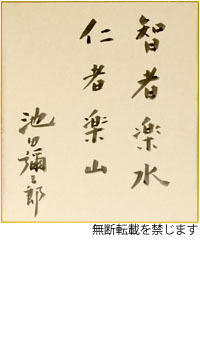 智者楽水
仁者楽山
池田彌三郎
無断転載を禁じます